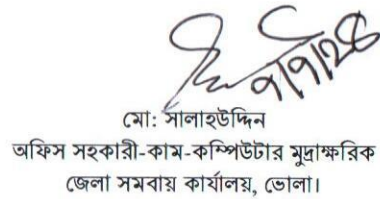 ৭/৭/২৫
মো: সালাহউদ্দিন
অফিস সহকারী-কাম-কম্পিউটার মুদ্রাক্ষরিক
জেলা সমবায় কার্যালয়, ভোলা।